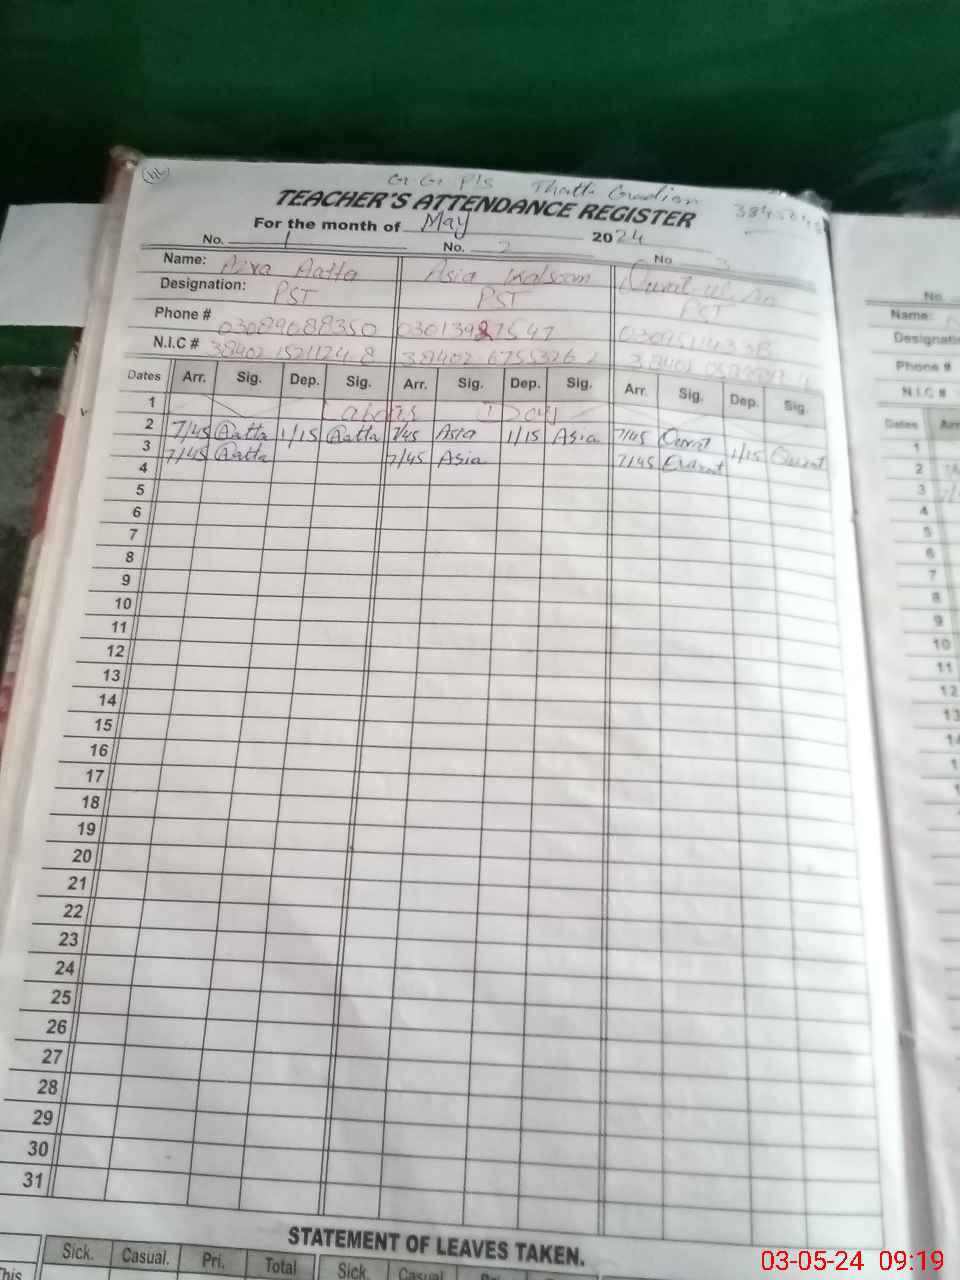 G.G P/S Thatti Gurdian
TEACHER'S ATTENDANCE REGISTER
For the month of May 2024
No. 1 No. 2 No 3
Name: Azra Aatta Asia Kalsoom Qurat ul
Designation: PST PST PST
Phone # 03089088350 03013987547
N.I.C #
Dates Arr. Sig. Dep. Sig. Arr. Sig. Dep. Sig. Arr. Sig. Dep. Sig.
1 Labour Day
2 7/45 Aatta 1/15 Aatta 7/45 Asia 1/15 Asia 7/45 Qurat 1/15 Qurat
3 7/45 Aatta 7/45 Asia 7/45
4
5
6
7
8
9
10
11
12
13
14
15
16
17
18
19
20
21
22
23
24
25
26
27
28
29
30
31
STATEMENT OF LEAVES TAKEN.
Sick. Casual. Pri. Total Sick. Casual
This
No
Name:
Designati
Phone #
N.I.C #
Dates
1
2
3
4
5
6
7
8
9
10
11
12
13
03-05-24 09:19